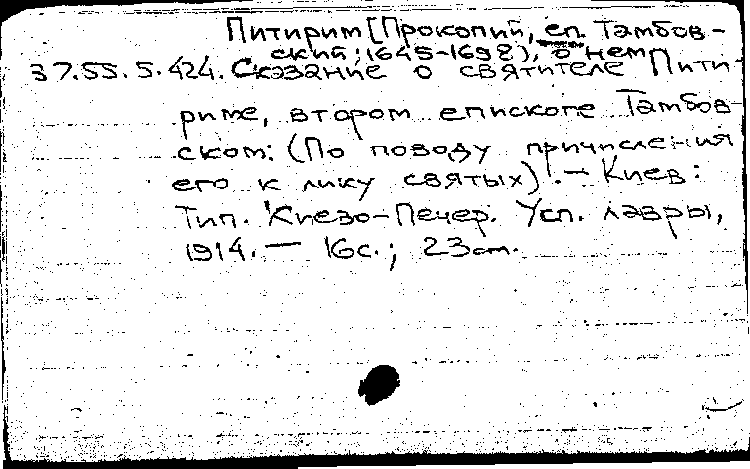 Питирим [Прокопий, еп. Тамбов-
ский; 1645-1698), о нем
37.55.5.424. Сказание о святителе Пити-
риме, втором епископе Тамбов-
ском: (По поводу причисления
его к лику святых). — Киев:
Тип. Киево-Печер. Усп. лавры,
1914. — 16с.; 23см.